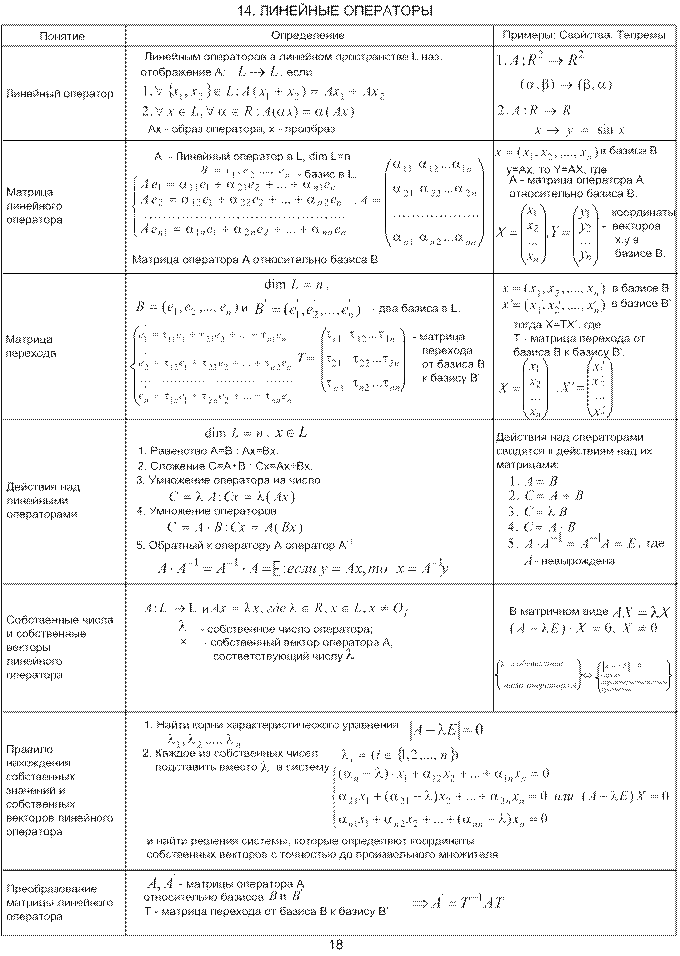 14. ЛИНЕЙНЫЕ ОПЕРАТОРЫ
Понятие Определение Примеры; Свойства. Теоремы
Линейный оператор
Линейным оператором в линейном пространстве L наз.
отображение A: L --> L, если
1. ∀ {x₁, x₂} ∈ L : A(x₁ + x₂) = Ax₁ + Ax₂
2. ∀ x ∈ L, ∀ α ∈ R : A(αx) = α(Ax)
Ax - образ оператора, x - прообраз
1. A : R² → R²
(α, β) → (β, α)
2. A : R → R
x → y = sin x
Матрица
линейного
оператора
A - Линейный оператор в L, dim L=n
B = e₁, e₂ ..., eₙ - базис в L.
Ae₁ = α₁₁e₁ + α₂₁e₂ + ... + αₙ₁eₙ
Ae₂ = α₁₂e₁ + α₂₂e₂ + ... + αₙ₂eₙ
Aeₙ = α₁ₙe₁ + α₂ₙe₂ + ... + αₙₙeₙ
A =
α₁₁ α₁₂ ... α₁ₙ
α₂₁ α₂₂ ... α₂ₙ
αₙ₁ αₙ₂ ... αₙₙ
Матрица оператора A относительно базиса B
x = (x₁, x₂, ..., xₙ) в базисе B
y=Ax, то Y=AX, где
A - матрица оператора A
относительно базиса B.
X = (x₁ x₂ ... xₙ), Y = (y₁ y₂ ... yₙ) - координаты
векторов
x,y в
базисе B.
Матрица
перехода
dim L = n,
B = (e₁, e₂, ..., eₙ) и B' = (e₁', e₂', ..., eₙ') - два базиса в L.
T =
τ₁₁ τ₁₂ ... τ₁ₙ
τ₂₁ τ₂₂ ... τ₂ₙ
τₙ₁ τₙ₂ ... τₙₙ
- матрица
перехода
от базиса B
к базису B'
x = (x₁, x₂, ..., xₙ) в базисе B
x' = (x₁', x₂', ..., xₙ') в базисе B'
тогда X=TX', где
T - матрица перехода от
базиса B к базису B'.
X = (x₁ x₂ ... xₙ), X' = (x₁' x₂' ... xₙ')
Действия над
линейными
операторами
dim L = n, x ∈ L
1. Равенство A=B : Ax=Bx.
2. Сложение C=A+B : Cx=Ax+Bx.
3. Умножение оператора на число
C = λ A : Cx = λ(Ax)
4. Умножение операторов
C = A · B : Cx = A(Bx)
5. Обратный к оператору A оператор A⁻¹
A · A⁻¹ = A⁻¹ · A = E : если y = Ax, то x = A⁻¹y
Действия над операторами
сводятся к действиям над их
матрицами:
1. A = B
2. C = A + B
3. C = λ B
4. C = A · B
5. A · A⁻¹ = A⁻¹A = E, где
A - невырождена
Собственные числа
и собственные
векторы
линейного
оператора
A : L → L и Ax = λx, где λ ∈ R, x ∈ L, x ≠ O,
λ - собственное число оператора;
x - собственный вектор оператора A,
соответствующий числу λ
В матричном виде AX = λX
(A - λE) · X = 0, X ≠ 0
Правило
нахождения
собственных
значений и
собственных
векторов линейного
оператора
1. Найти корни характеристического уравнения |A - λE| = 0
λ₁, λ₂, ..., λₙ
2. Каждое из собственных чисел λᵢ = (i ∈ {1,2,..., n})
подставить вместо λ, в систему
(α₁₁ - λ) · x₁ + α₁₂x₂ + ... + α₁ₙxₙ = 0
α₂₁x₁ + (α₂₁ - λ)x₂ + ... + α₂ₙxₙ = 0 или (A - λE)X = 0
αₙ₁x₁ + αₙ₂x₂ + ... + (αₙₙ - λ)xₙ = 0
и найти решения системы, которые определяют координаты
собственных векторов с точностью до произвольного множителя
Преобразование
матрицы линейного
оператора
A, A' - матрицы оператора A
относительно базисов B и B'
T - матрица перехода от базиса B к базису B'
⇒ A' = T⁻¹AT
18